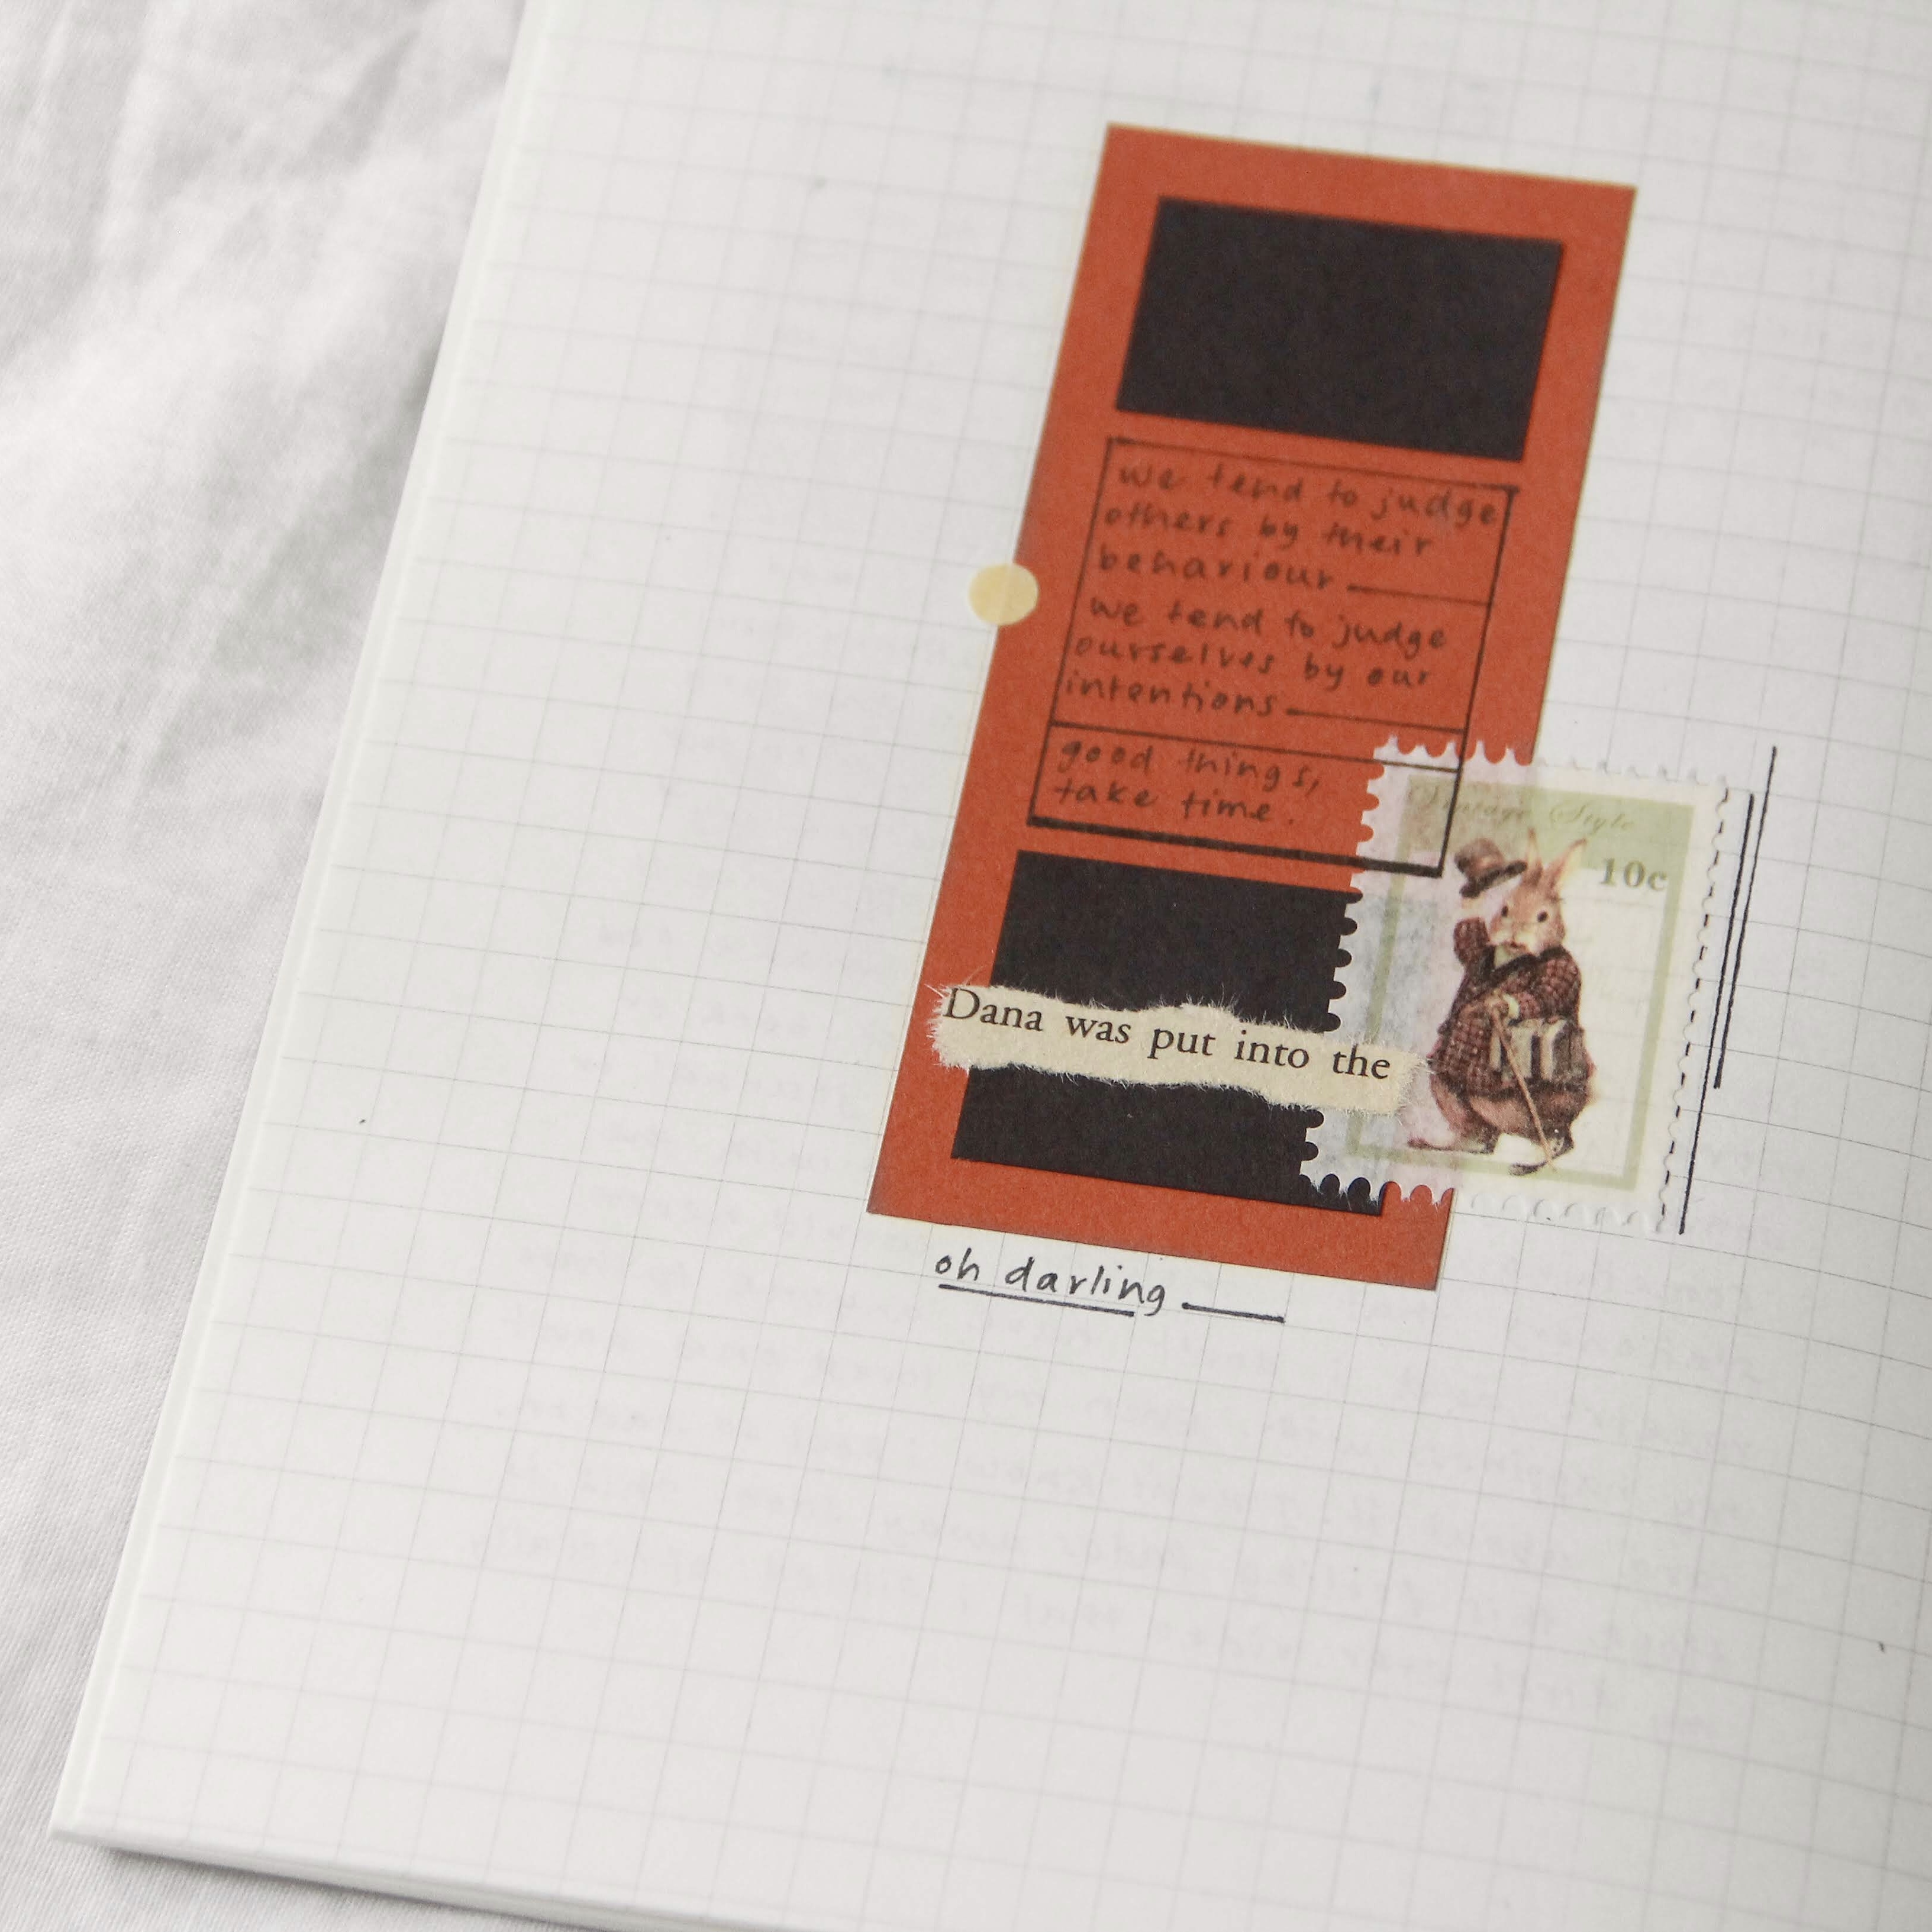 we tend to judge
others by their
behaviour
we tend to judge
ourselves by our
intentions
good things,
take time.
Vintage Style
10c
Dana was put into the
oh darling